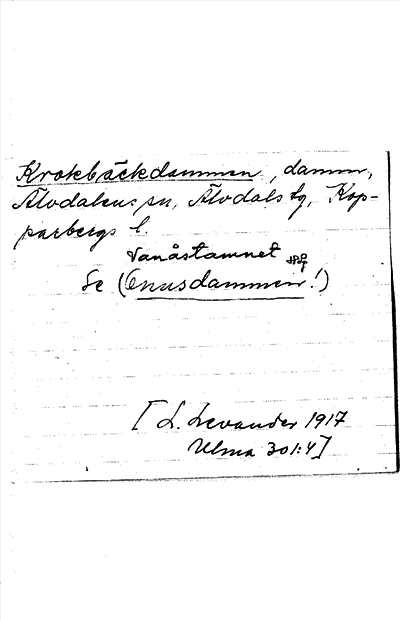 Krokbäckdammen, damm,
Älvdalens sn, Älvdals tg, Kop-
parbergs l.
Vanåstamnet
Se (Enusdammen!)
[L. Levander 1917
Ulma 301:4]